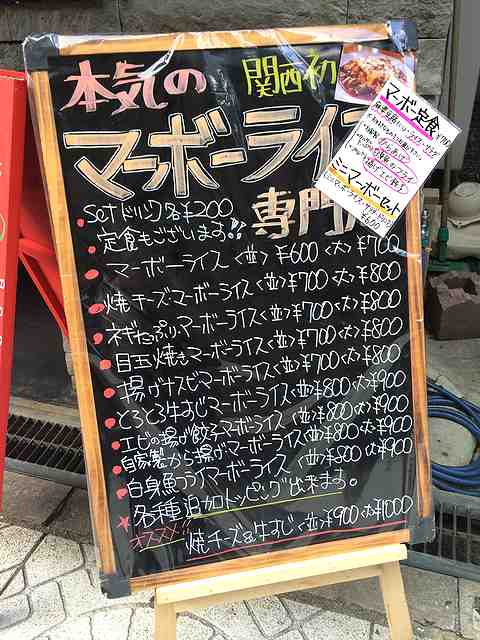 本気の 関西初
マーボーライス
専門
Setドリンク各¥200
定食もございます!!
マーボーライス <並>¥600<大>¥700
焼チーズマーボーライス<並>¥700<大>¥800
ネギたっぷりマーボーライス<並>¥700<大>¥800
目玉焼きマーボーライス<並>¥700<大>¥800
揚げナスビマーボーライス<並>¥700<大>¥800
とろとろ牛すじマーボーライス<並>¥800<大>¥900
エビの揚げ餃子マーボーライス<並>¥800<大>¥900
自家製から揚げマーボーライス<並>¥800<大>¥900
白身魚フライマーボーライス <並>¥800<大>¥900
各種追加トッピング出来ます。
オススメ!! 焼チーズ&牛すじ<並>¥900<大>¥1000
マーボー定食
ミニマーボーセット